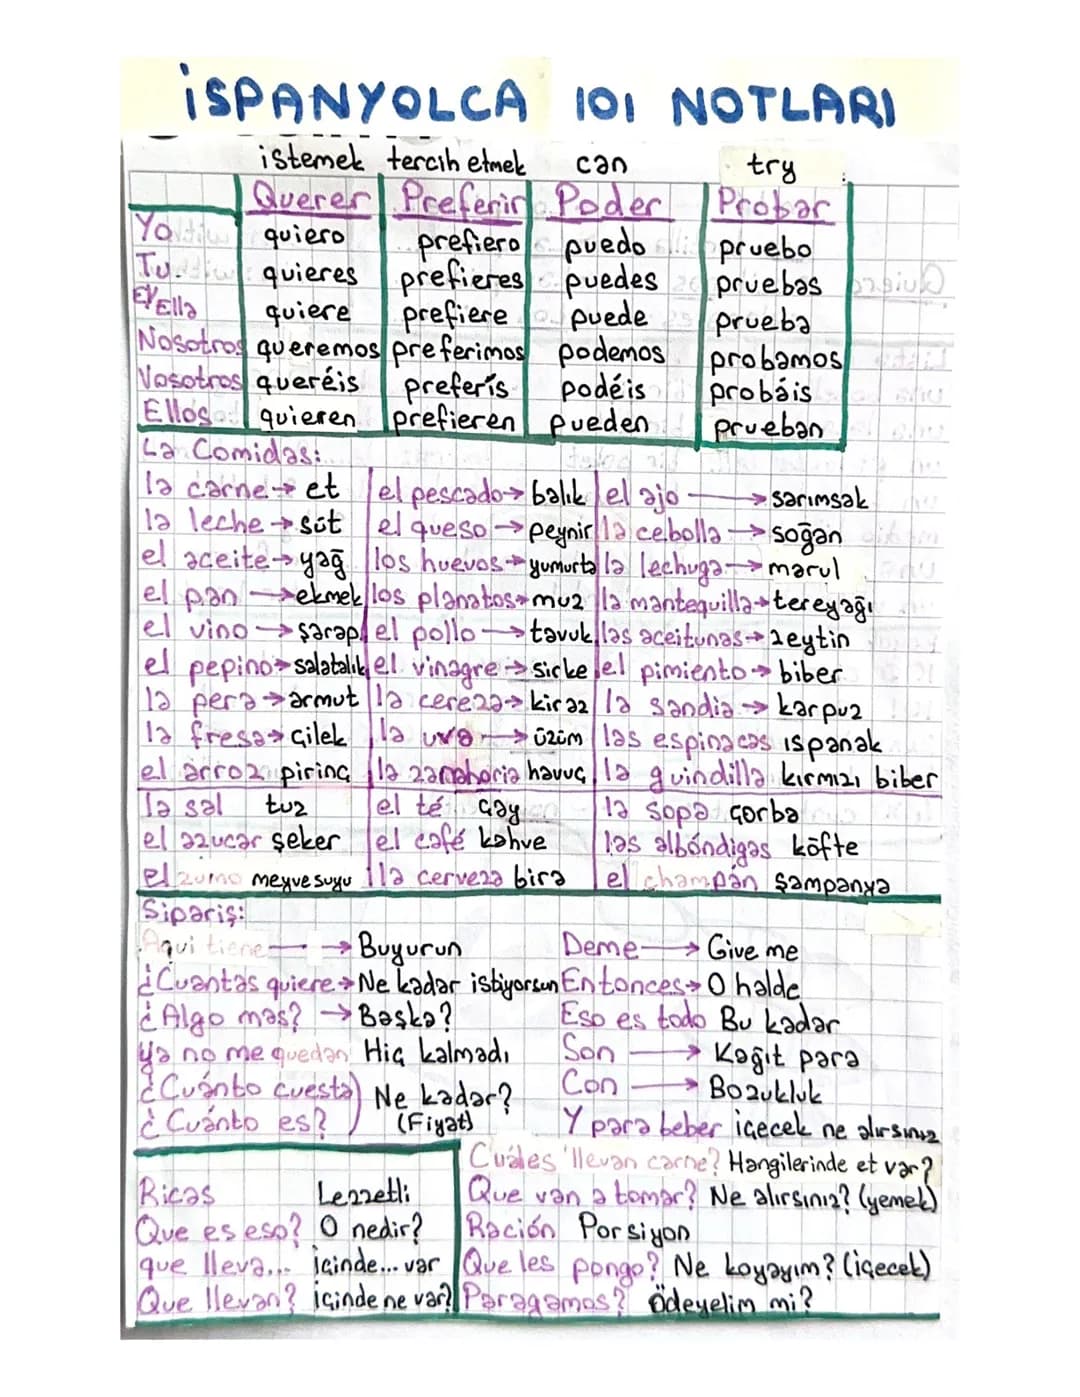 İSPANYOLCA 101 NOTLARI
istemek tercih etmek can try
Querer Preferir Poder Probar
Yo quiero prefiero puedo pruebo
Tu quieres prefieres puedes pruebas
El/Ella quiere prefiere puede prueba
Nosotros queremos preferimos podemos probamos
Vosotros queréis preferís podéis probáis
Ellos quieren prefieren pueden prueban
La Comidas:
la carne → et el pescado → balık el ajo → sarımsak
la leche → süt el queso → peynir la cebolla → soğan
el aceite → yağ los huevos → yumurta la lechuga → marul
el pan → ekmek los planatos → muz la mantequilla → tereyağı
el vino → şarap el pollo → tavuk las aceitunas → zeytin
el pepino → salatalık el vinagre → sirke el pimiento → biber
la pera → armut la cereza → kiraz la sandia → karpuz
la fresa → çilek la uva → üzüm las espinacas ıspanak
el arroz pirinç la zanahoria havuç la guindilla kırmızı biber
la sal tuz el té çay la sopa çorba
el azucar şeker el café kahve las albóndigas köfte
el zumo meyve suyu la cerveza bira el champán şampanya
Sipariş:
Aqui tiene → Buyurun Deme → Give me
¿Cuantas quiere → Ne kadar istiyorsun Entonces → O halde
¿Algo mas? → Başka? Eso es todo Bu kadar
ya no me quedan Hiç kalmadı Son → Kağıt para
¿Cuánto cuesta Ne kadar? Con → Bozukluk
¿Cuánto es? (Fiyat) Y para beber içecek ne alırsınız
Cuáles llevan carne? Hangilerinde et var?
Ricas Lezzetli Que van a tomar? Ne alırsınız? (yemek)
Que es eso? O nedir? Ración Porsiyon
que lleva... içinde... var Que les pongo? Ne koyayım? (içecek)
Que llevan? içinde ne var? Paragamos? Ödeyelim mi?